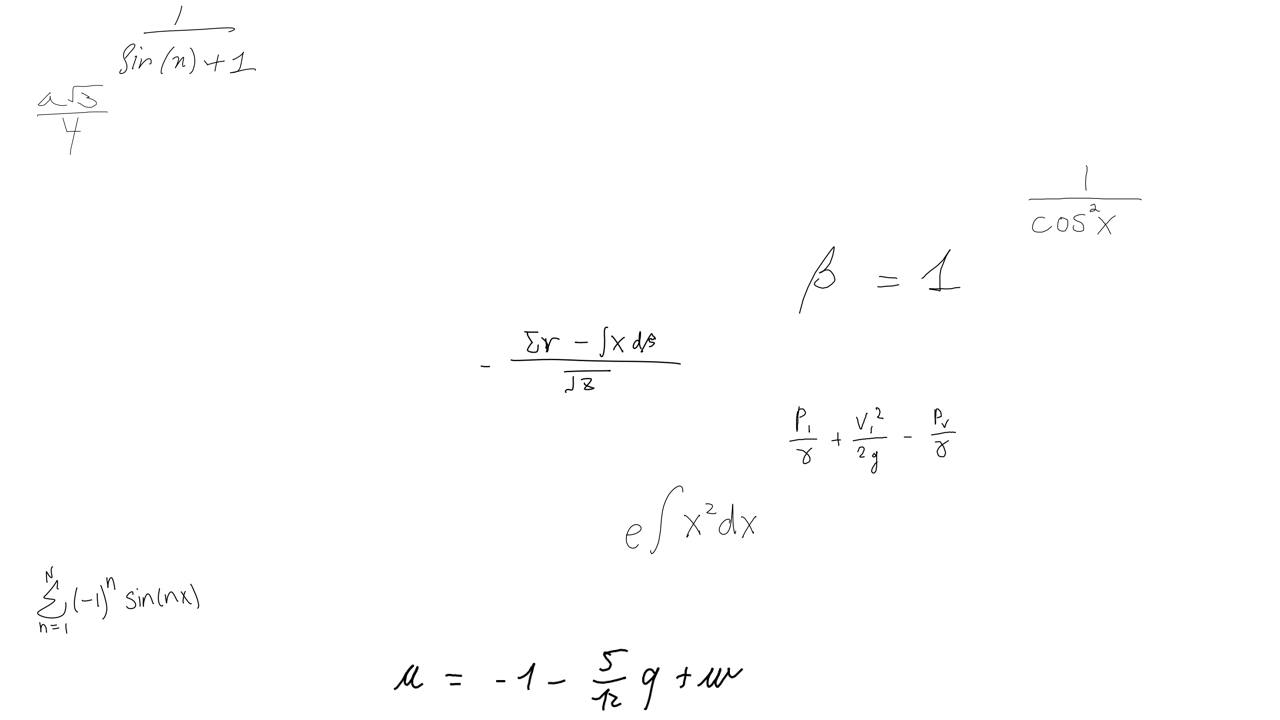 \frac{1}{\sin(n)+1}
\frac{a\sqrt{3}}{4}
\frac{1}{\cos^2 x}
\beta = 1
-\frac{\Sigma r - \int x d\beta}{\sqrt{8}}
\frac{P_1}{\gamma} + \frac{V_1^2}{2g} - \frac{P_v}{\gamma}
e \int x^2 dx
\sum_{n=1}^{N} (-1)^n \sin(nx)
u = -1 - \frac{5}{12} q + w